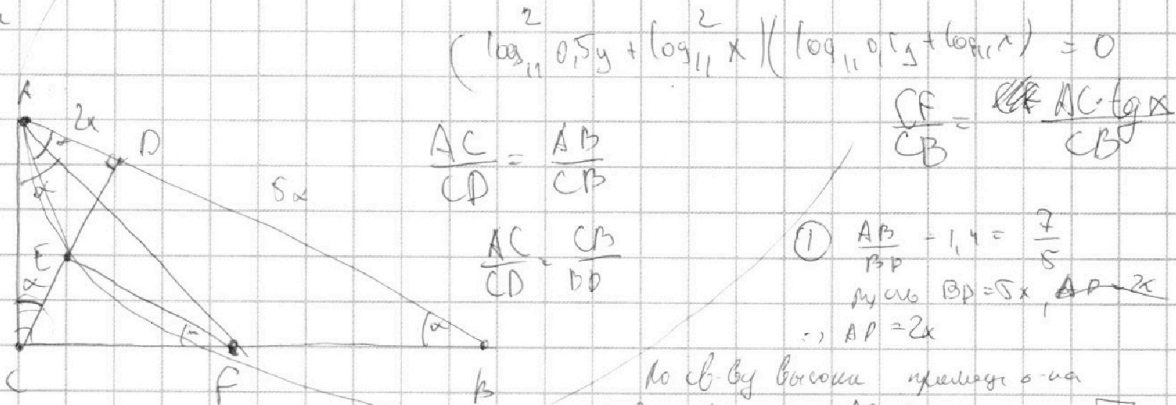 (log₁₁² 0,5y + log₁₁² x)(log₁₁ 0,5y + log₁₁ x) = 0
A
2x
D
α
5x
E
α
C
F
B
α
AC/CD = AB/CB
AC/CD = CB/BD
CF/CB = AC·tgα/CB
① AB/BD = 1,4 = 7/5
пусть BD = 5x,
=> AD = 2x
по св-ву высоты